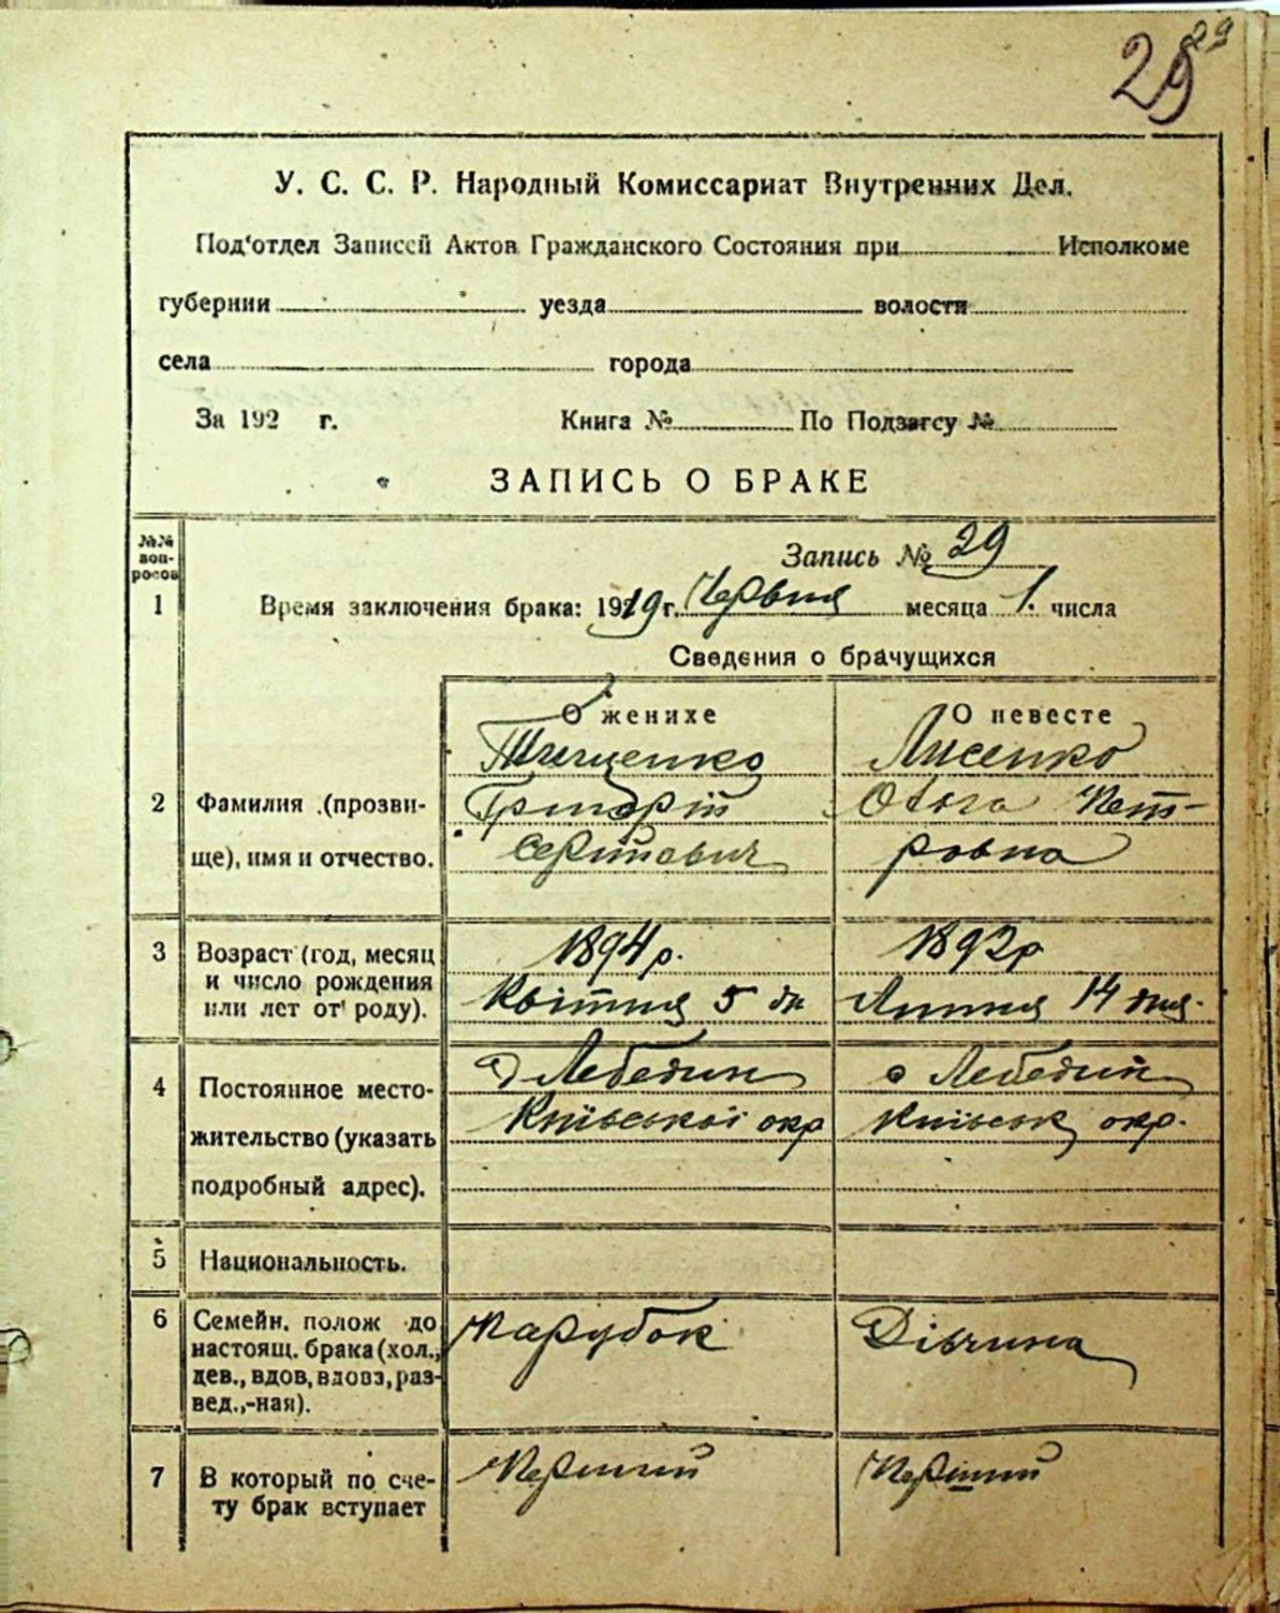 29
29
У. С. С. Р. Народный Комиссариат Внутренних Дел.
Под'отдел Записей Актов Гражданского Состояния при Исполкоме
губернии уезда волости
села города
За 192 г. Книга № По Подзагсу №
ЗАПИСЬ О БРАКЕ
№№ воп-
росов
Запись № 29
1 Время заключения брака: 1919 г. Червня месяца 1. числа
Сведения о брачущихся
О женихе О невесте
Тищенко Лисенко
2 Фамилия (прозви- Григорій Ольга Пет-
ще), имя и отчество. Сергійович ровна
3 Возраст (год, месяц 1894 р. 1892 р
и число рождения
или лет от роду). Квітня 5 дн Липня 14 дня.
4 Постоянное место- Лебедин с Лебедин
жительство (указать Київської окр Київськ окр.
подробный адрес).
5 Национальность.
6 Семейн. полож до Парубок Дівчина
настоящ. брака (хол.,
дев., вдов, вдова, раз-
вед.,-ная).
7 В который по сче- Перший Перший
ту брак вступает